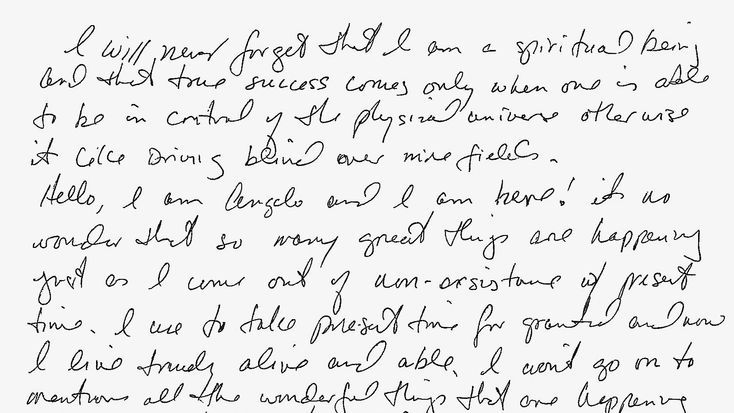 I will never forget that I am a spiritual being
and that true success comes only when one is able
to be in control of the physical universe otherwise
it like Driving blind over mine fields.
Hello, I am Angelo and I am here! its no
wonder that so many great things are happening
just as I come out of non-existance w/ present
time. I use to take present time for granted and now
I live truely alive and able. I wont go on to
mentions all the wonderful things that are happening